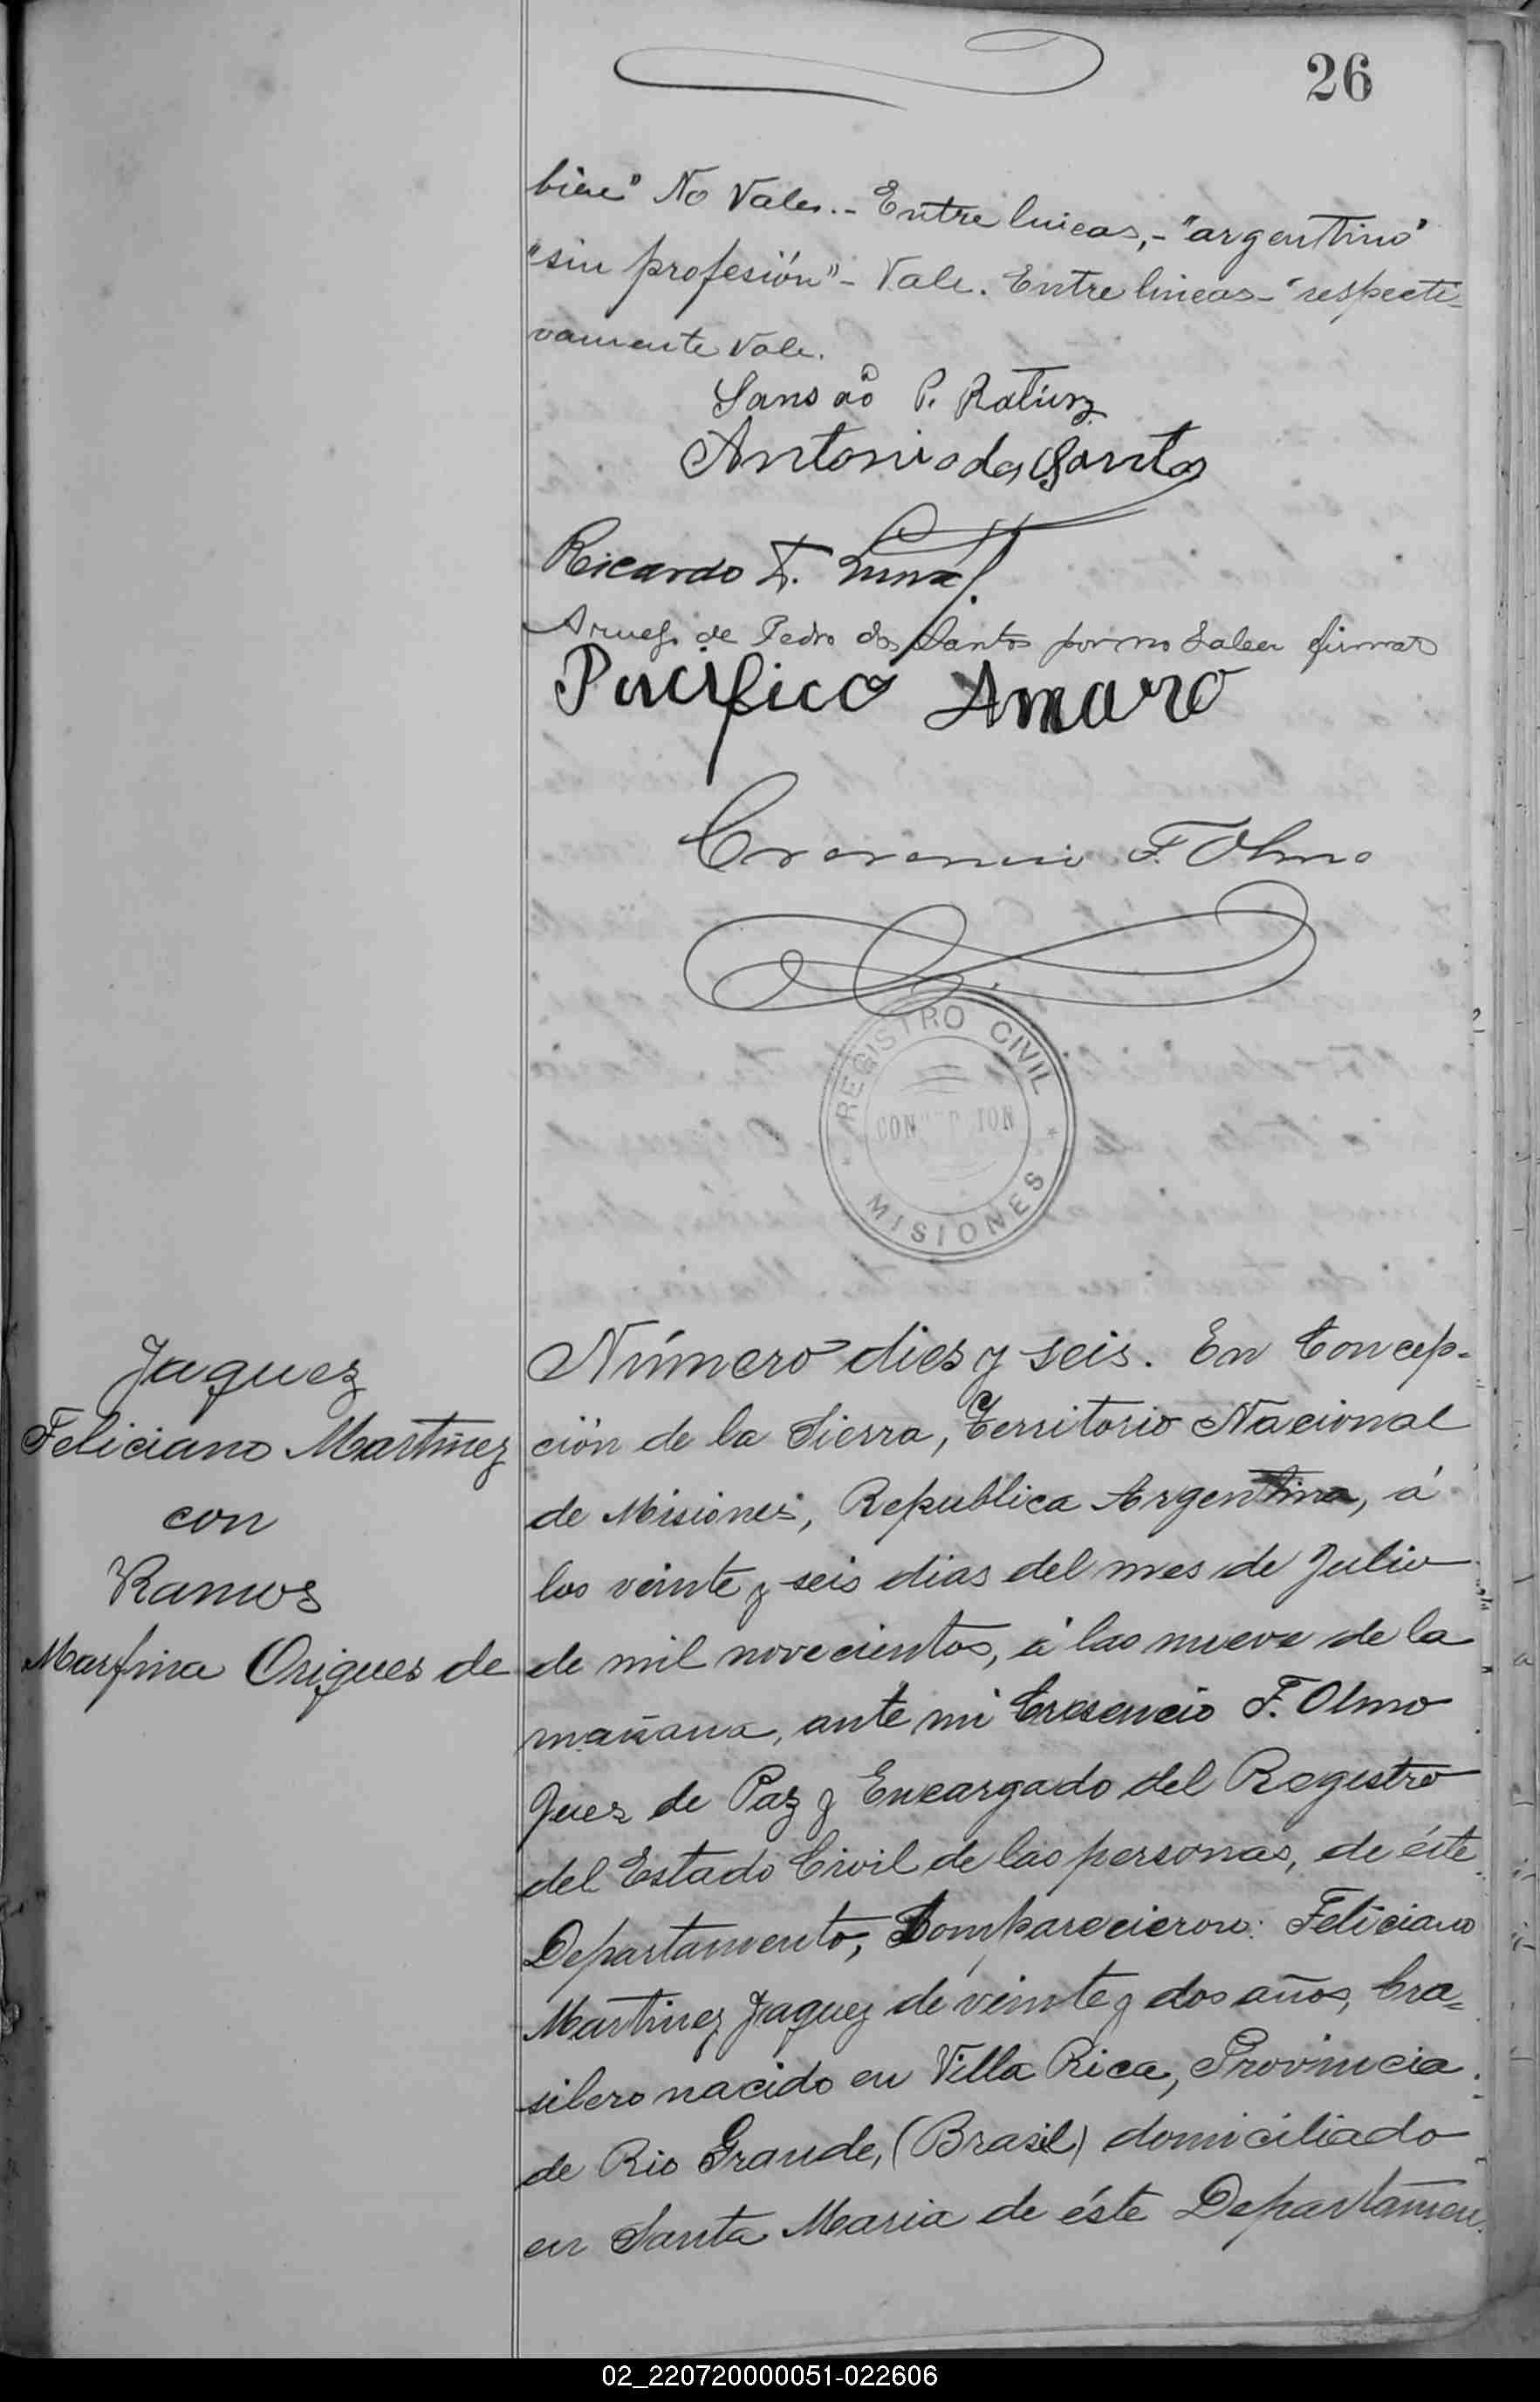 26
bien" No Vale.- Entre lineas,- "argentino"
"sin profesión"- Vale. Entre lineas- "respecti-
vamente Vale.
Sansão P.
Antonio dos Santos
Ricardo T. Luna
A ruego de Pedro dos Santos por no saber firmar
Pacifico Amaro
Cresencio F. Olmo
REGISTRO CIVIL
CON ION
MISIONES
Jaquez
Feliciano Martinez
con
Ramos
Marfina Origues de
Número dies y seis. En Concep-
ción de la Sierra, Territorio Nacional
de Misiones, Republica Argentina, á
los veinte y seis dias del mes de Julio
de mil novecientos, á las nueve de la
mañana, ante mi Cresencio F. Olmo
Juez de Paz y Encargado del Registro
del Estado Civil de las personas, de éste
Departamento, Comparecieron: Feliciano
Martinez Jaquez de veinte y dos años, bra-
silero nacido en Villa Rica, Provincia
de Rio Grande, (Brasil) domiciliado
en Santa Maria de éste Departamen
02_220720000051-022606